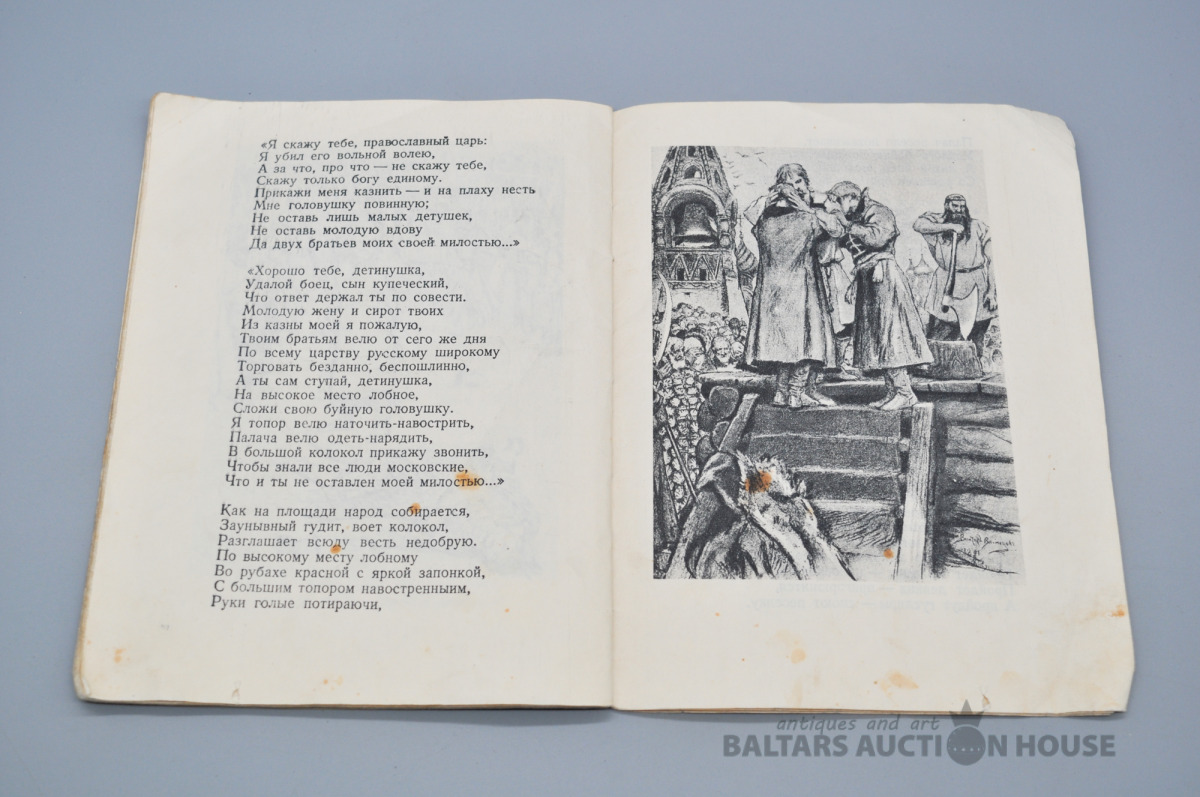 «Я скажу тебе, православный царь:
Я убил его вольной волею,
А за что, про что — не скажу тебе,
Скажу только богу единому.
Прикажи меня казнить — и на плаху несть
Мне головушку повинную;
Не оставь лишь малых детушек,
Не оставь молодую вдову
Да двух братьев моих своей милостью...»
«Хорошо тебе, детинушка,
Удалой боец, сын купеческий,
Что ответ держал ты по совести.
Молодую жену и сирот твоих
Из казны моей я пожалую,
Твоим братьям велю от сего же дня
По всему царству русскому широкому
Торговать безданно, беспошлинно,
А ты сам ступай, детинушка,
На высокое место лобное,
Сложи свою буйную головушку.
Я топор велю наточить-навострить,
Палача велю одеть-нарядить,
В большой колокол прикажу звонить,
Чтобы знали все люди московские,
Что и ты не оставлен моей милостью...»
Как на площади народ собирается,
Заунывный гудит, воет колокол,
Разглашает всюду весть недобрую.
По высокому месту лобному
Во рубахе красной с яркой запонкой,
С большим топором навостренныим,
Руки голые потираючи,
antiques and art
BALTARS AUCTION HOUSE